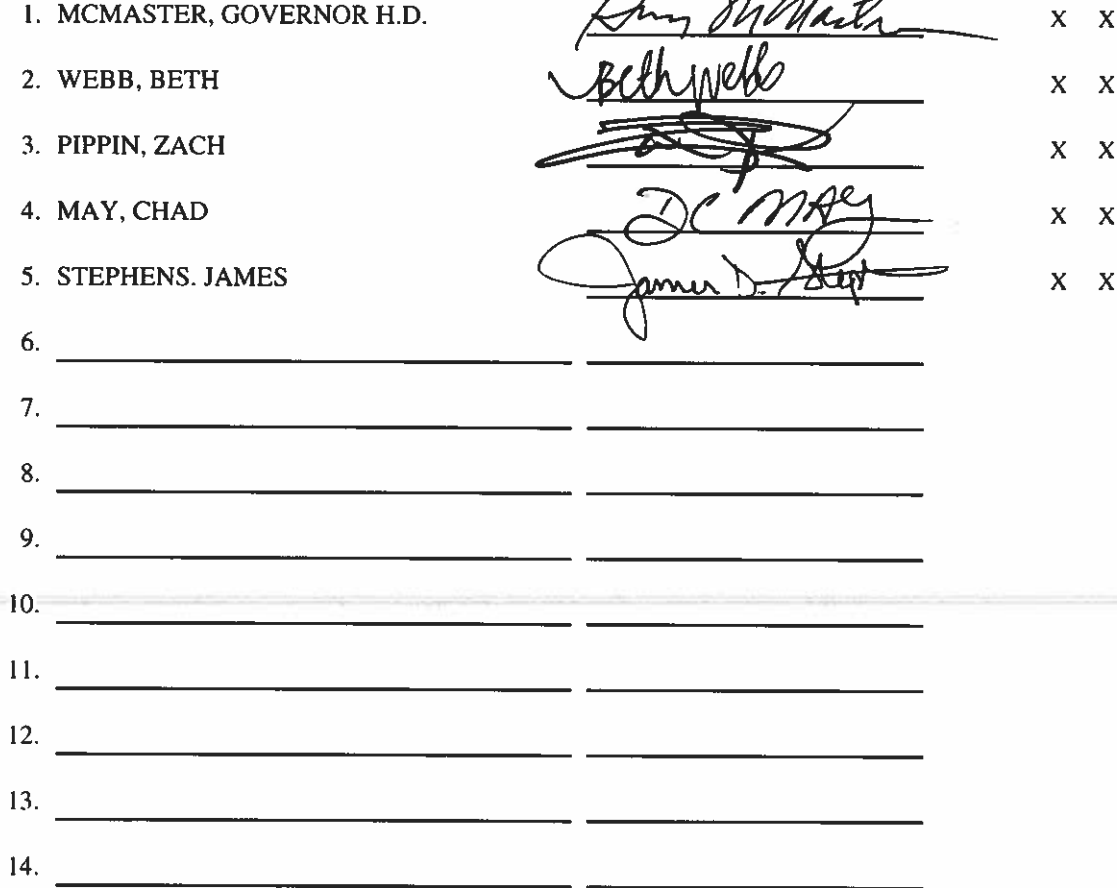 1. MCMASTER, GOVERNOR H.D. Henry McMaster X X
2. WEBB, BETH Beth Webb X X
3. PIPPIN, ZACH X X
4. MAY, CHAD DC MAY X X
5. STEPHENS. JAMES James D. Steph X X
6.
7.
8.
9.
10.
11.
12.
13.
14.